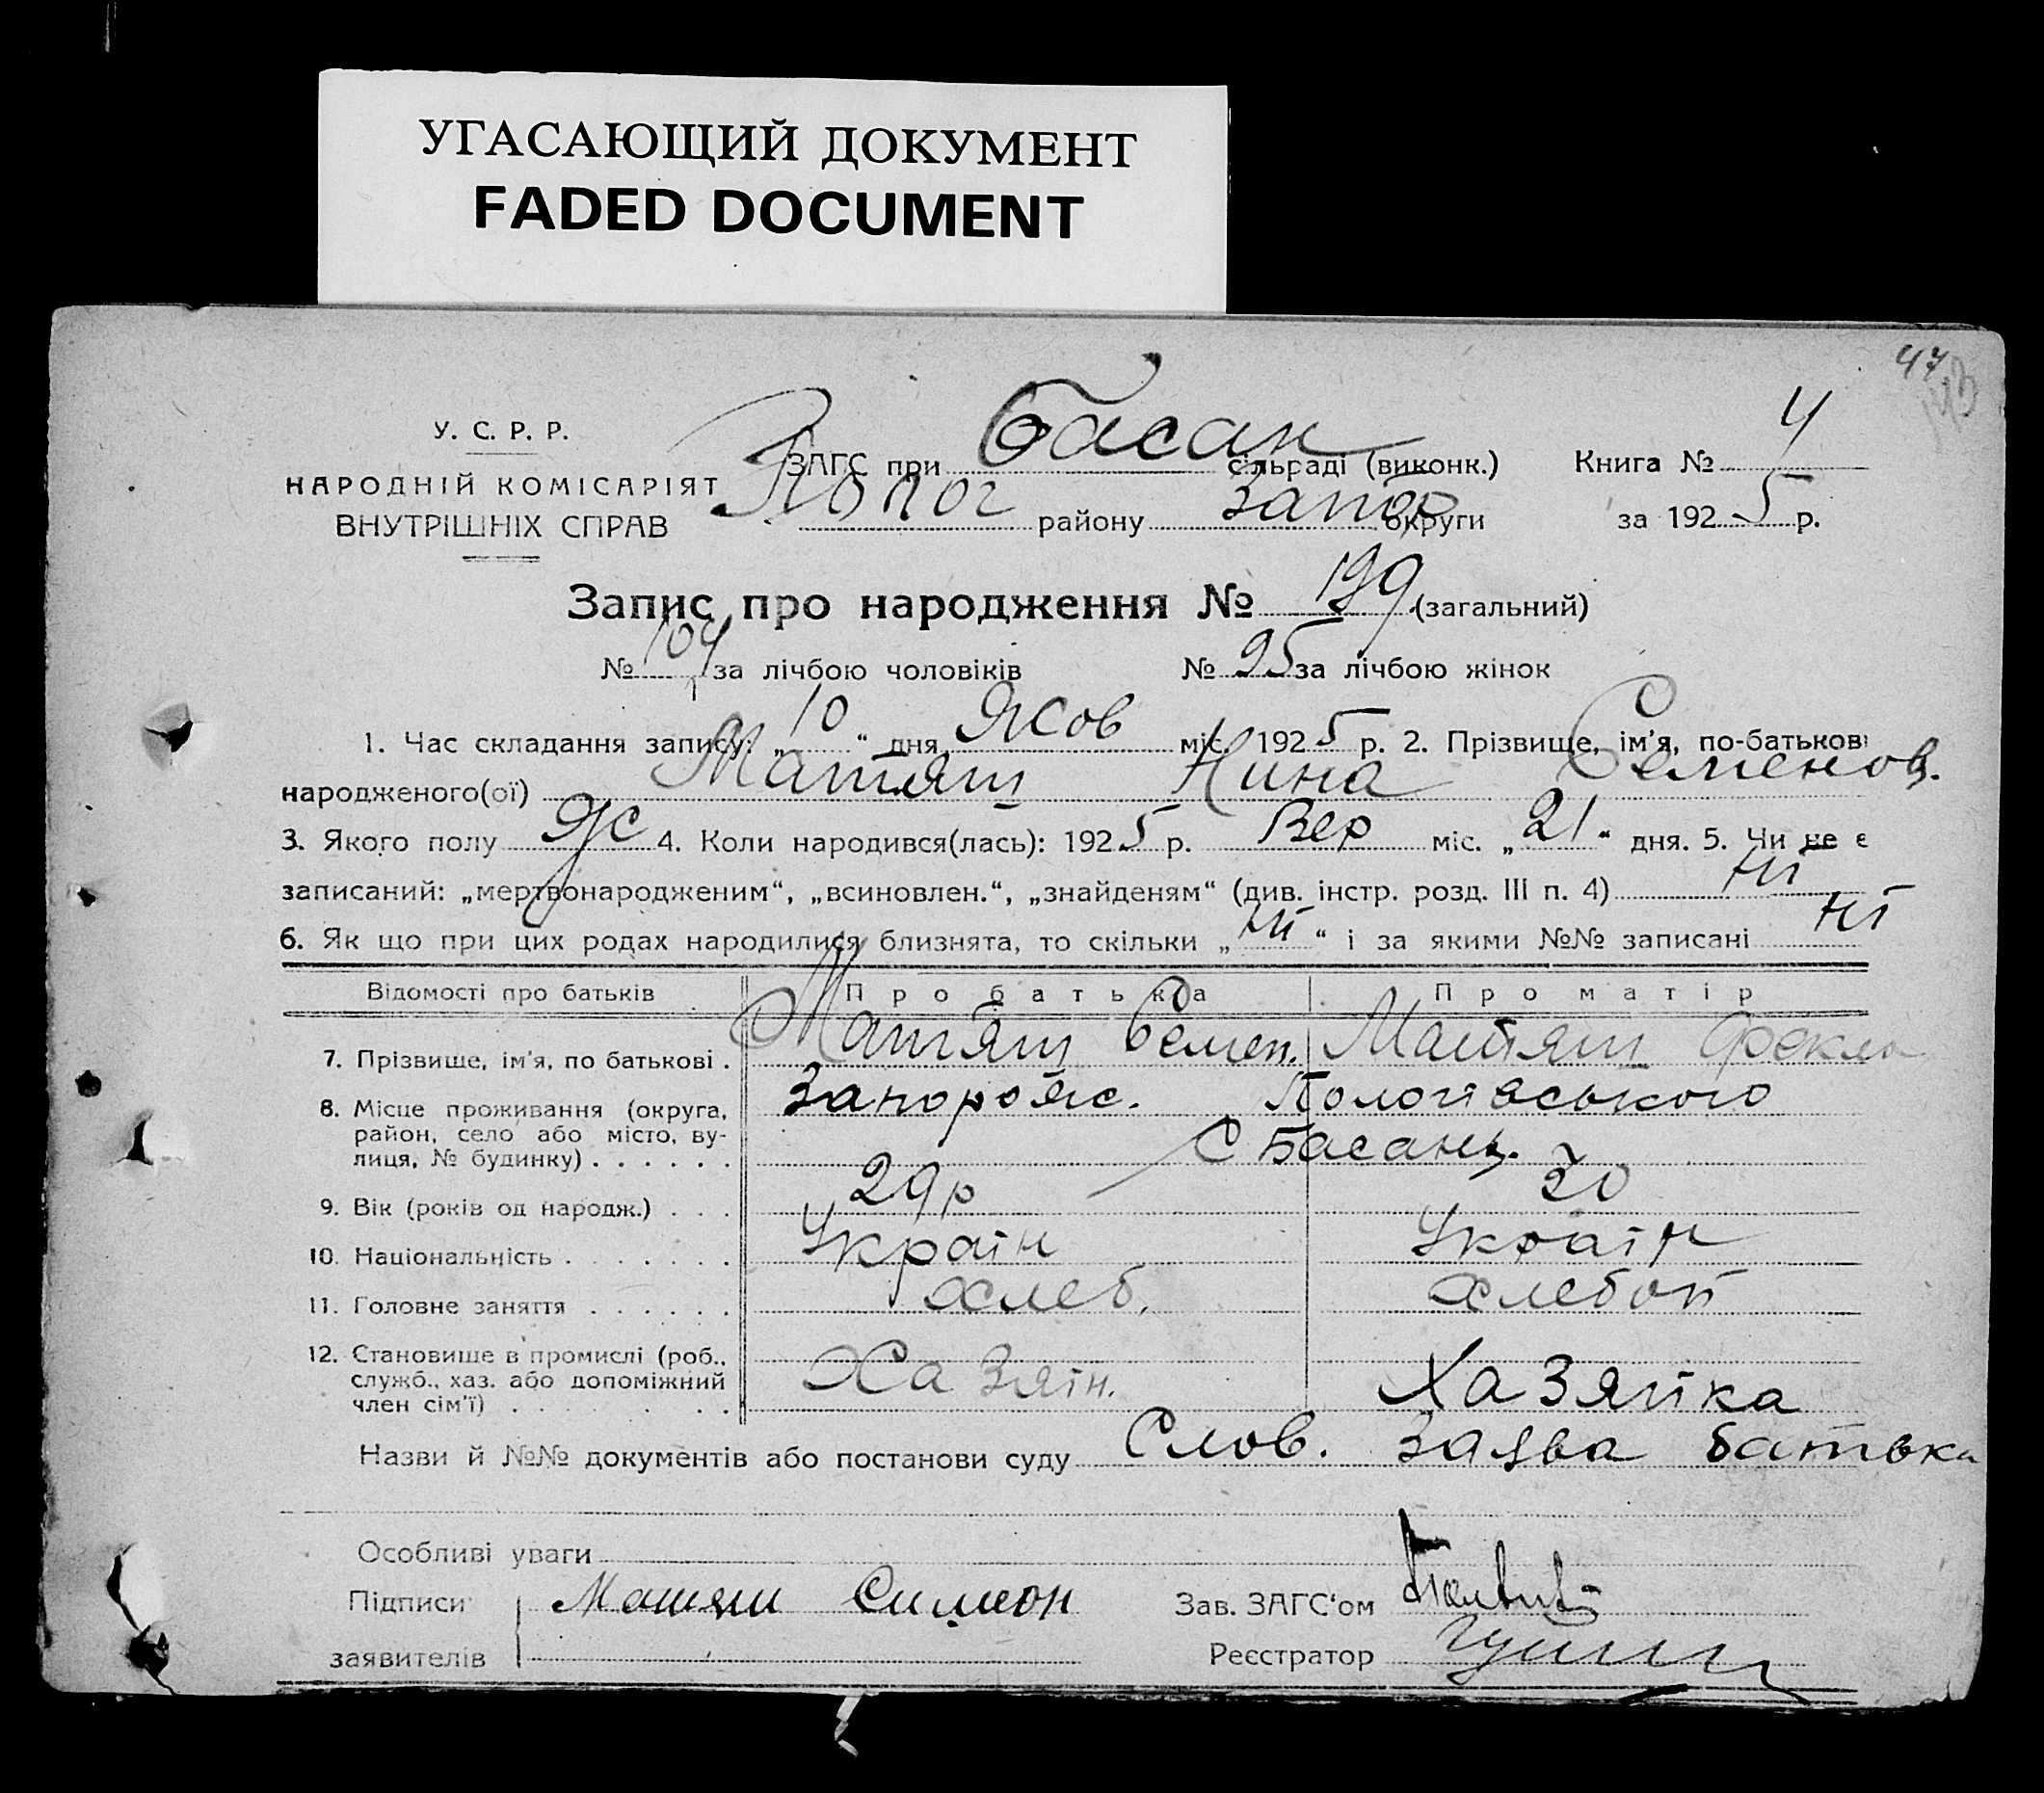 УГАСАЮЩИЙ ДОКУМЕНТ
FADED DOCUMENT
47
У. С. Р. Р.
НАРОДНІЙ КОМІСАРІЯТ
ВНУТРІШНІХ СПРАВ
ЗАГС при Басан сільраді (виконк.) Книга № 4
Полог району Запор округи за 1925 р.
Запис про народження № 199 (загальний)
№ 104 за лічбою чоловіків № 95 за лічбою жінок
1. Час складання запису: „10“ дня Жов міс. 1925 р. 2. Прізвище, ім'я, по-батькові
народженого(ої) Матяш Нина Семенов.
3. Якого полу Ж 4. Коли народився(лась): 1925 р. Вер міс. „21“ дня. 5. Чи не є
записаний: „мертвонародженим“, „всиновлен.“, „знайденям“ (див. інстр. розд. III п. 4) ні
6. Як що при цих родах народилися близнята, то скільки „ні“ і за якими №№ записані ні
Відомості про батьків Про батька Про матір
7. Прізвище, ім'я, по батькові . Матяш Семен. Матяш Фекла
8. Місце проживання (округа, Запорожс. Пологівського
район, село або місто, ву- С Басань.
лиця, № будинку) . . . . . .
9. Вік (років од народж.) . . . 29р 30
10. Національність . . . . . . . Україн Україн
11. Головне заняття . . . . . . Хлеб. Хлебоп
12. Становище в промислі (роб.,
служб., хаз. або допоміжний Хазяін. Хазяйка
член сім'ї) . . . . . .
Назви й №№ документів або постанови суду Слов. заява батька
Особливі уваги
Підписи Матяш Симеон Зав. ЗАГС'ом
заявителів Реєстратор